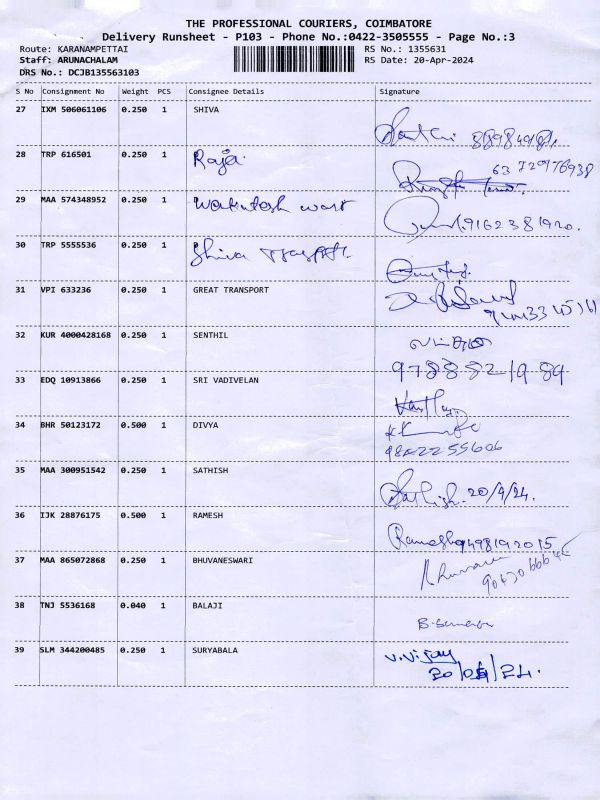 THE PROFESSIONAL COURIERS, COIMBATORE
Delivery Runsheet - P103 - Phone No.:0422-3505555 - Page No.:3
Route: KARANAMPETTAI RS No.: 1355631
Staff: ARUNACHALAM RS Date: 20-Apr-2024
DRS No.: DCJB135563103
S No Consignment No Weight PCS Consignee Details Signature
27 IXM 506061106 0.250 1 SHIVA
28 TRP 616501 0.250 1 Raja
63 72976938
29 MAA 574348952 0.250 1
9162381920.
30 TRP 5555536 0.250 1 Shiva
31 VPI 633236 0.250 1 GREAT TRANSPORT
32 KUR 4000428168 0.250 1 SENTHIL
33 EDQ 10913866 0.250 1 SRI VADIVELAN
34 BHR 50123172 0.500 1 DIVYA
9842255606
35 MAA 300951542 0.250 1 SATHISH
Sathish. 20/4/24.
36 IJK 28876175 0.500 1 RAMESH
Ramesh 9498192015
37 MAA 865072868 0.250 1 BHUVANESWARI
38 TNJ 5536168 0.040 1 BALAJI
39 SLM 344200485 0.250 1 SURYABALA V.Vijay
20/04/24.